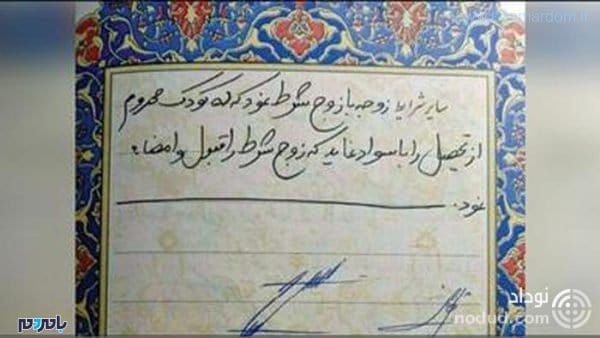 سایر شرایط زوجه با زوج شرط نمود که ده کودک محروم
از تحصیل را باسواد نماید که زوج شرط را قبول و امضاء
نمود.
نوداد
nodud.com